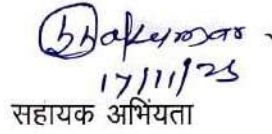 17/11/25
सहायक अभियंता